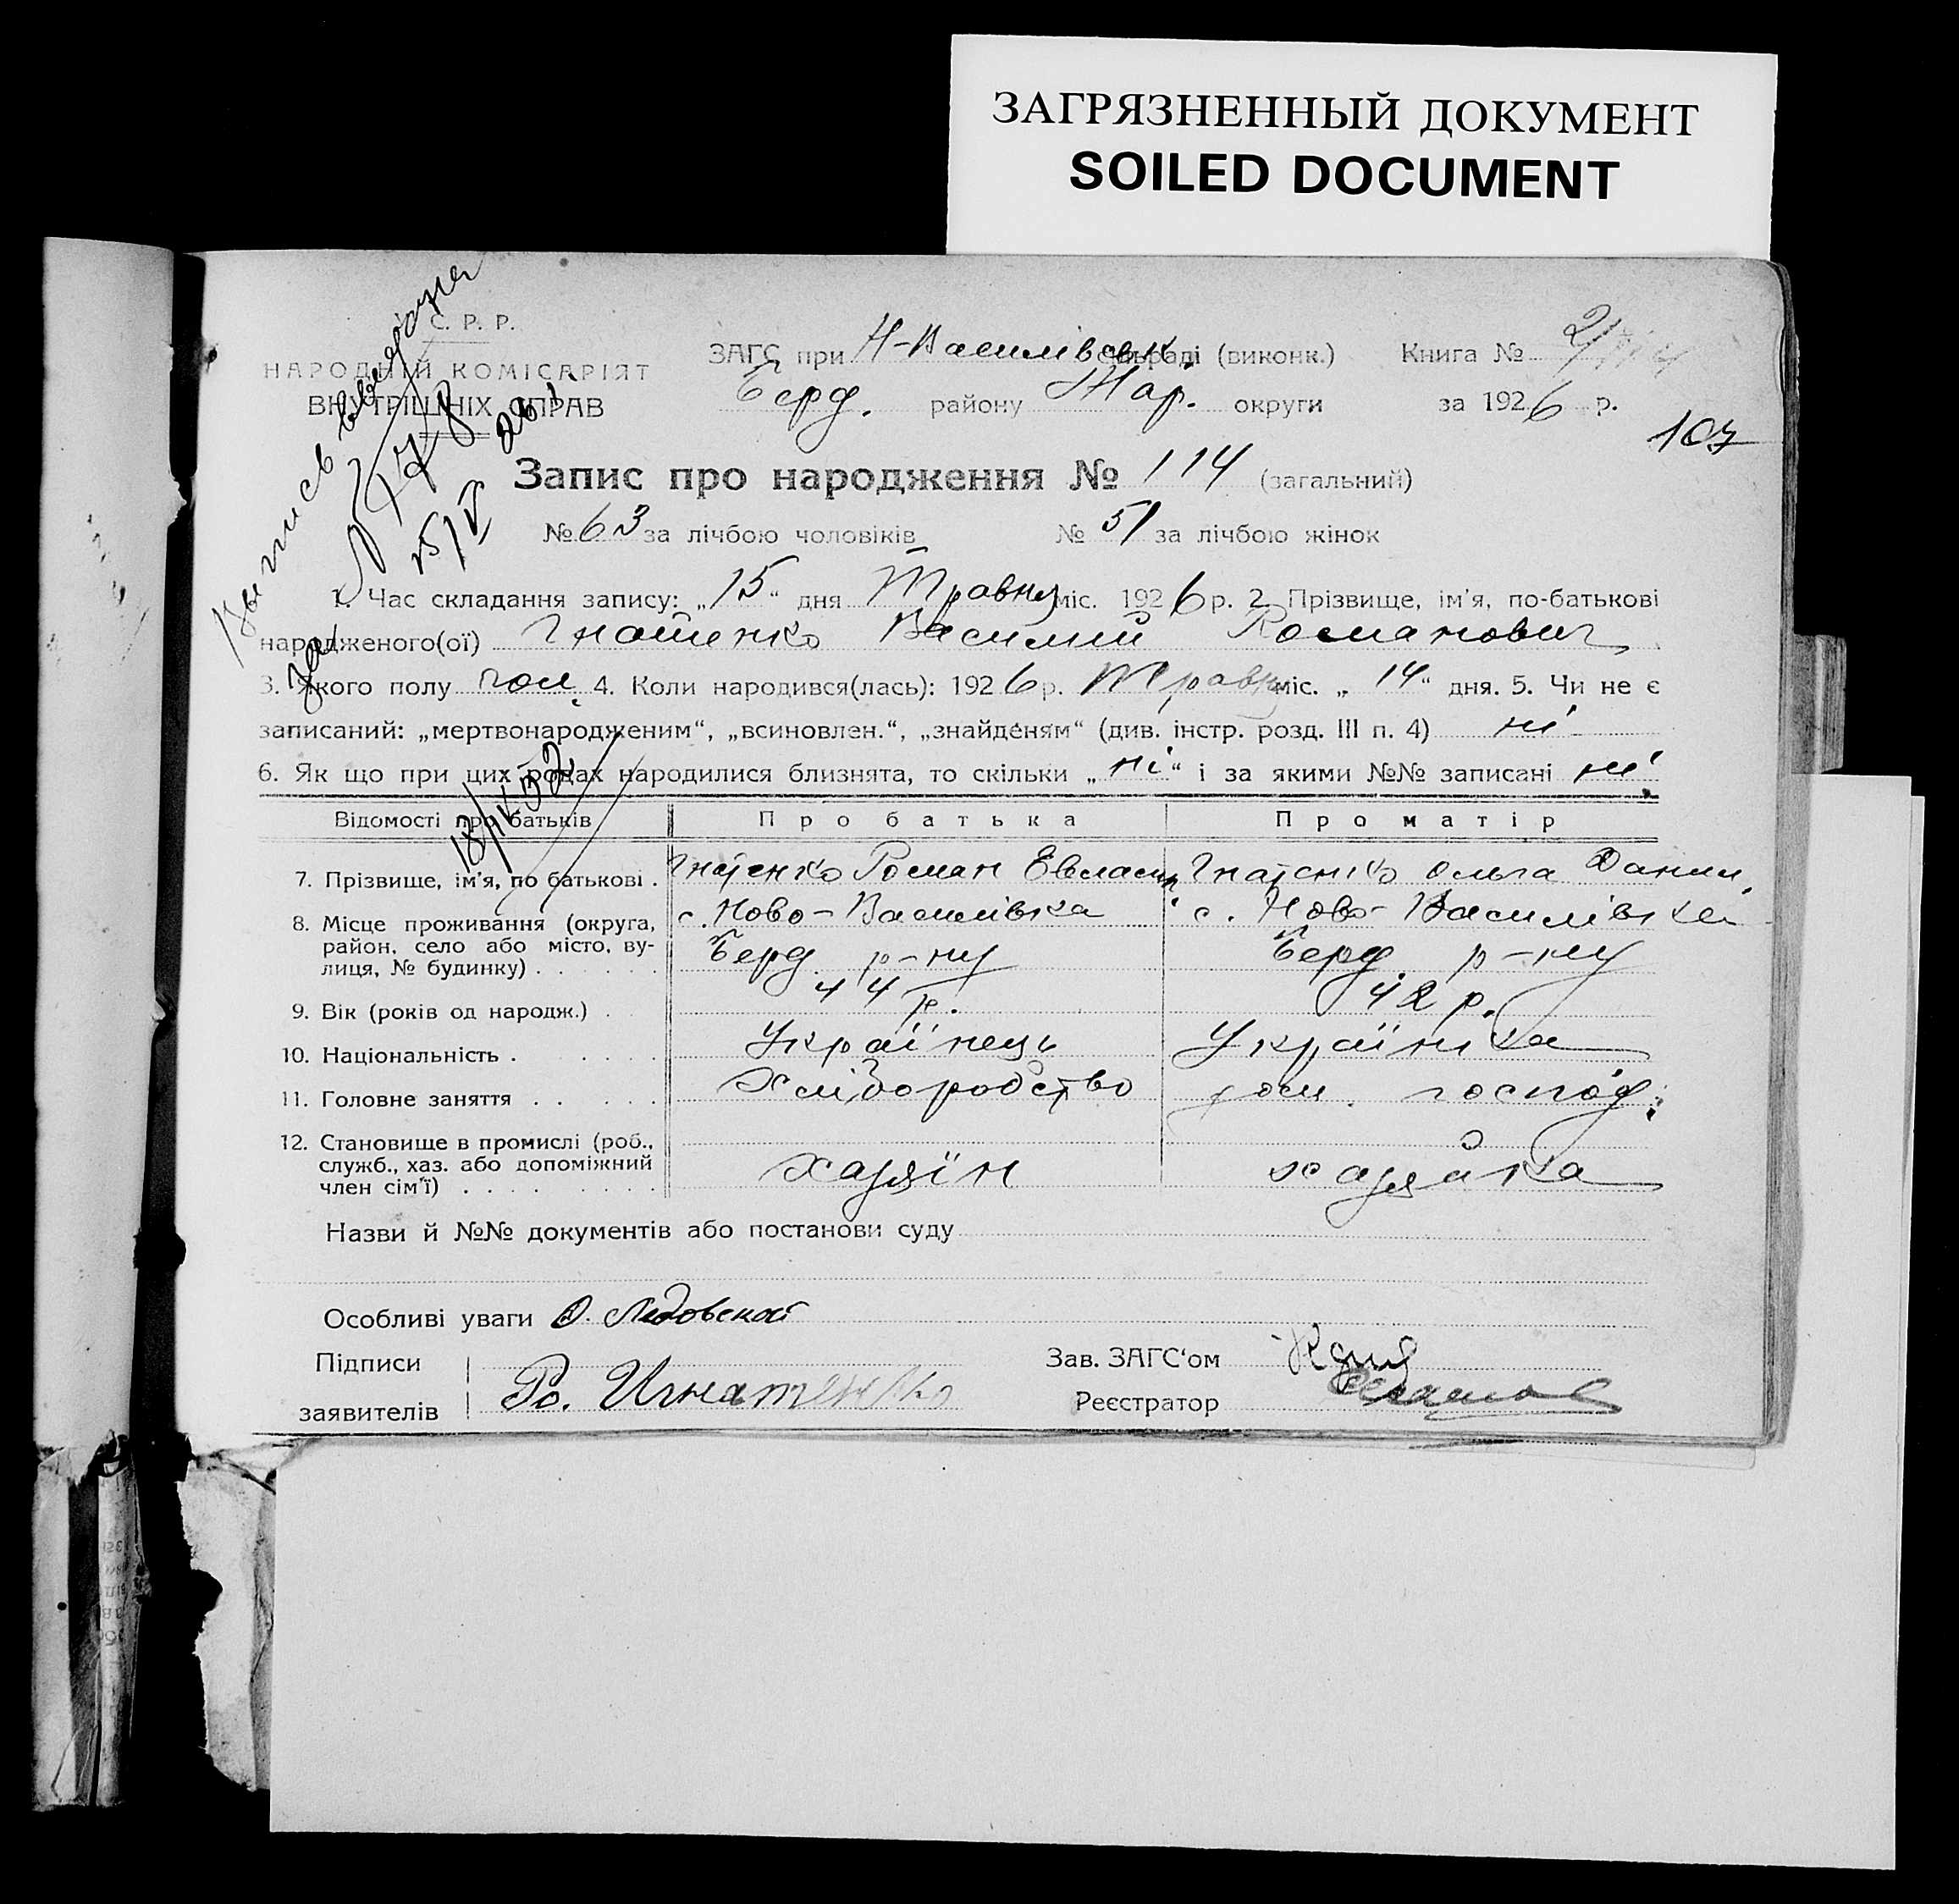 ЗАГРЯЗНЕННЫЙ ДОКУМЕНТ
SOILED DOCUMENT
С. Р. Р.
НАРОДНІЙ КОМІСАРІЯТ
ВНУТРІШНІХ СПРАВ
ЗАГС при Н-Василівськ. сільраді (виконк.) Книга № 2
Берд. району Мар. округи за 1926 р.
107
Запис про народження № 114 (загальний)
№ 63 за лічбою чоловіків № 51 за лічбою жінок
1. Час складання запису: „15“ дня Травня міс. 1926 р. 2. Прізвище, ім’я, по-батькові
народженого(ої) Гнатенко Василий Романович
3. Якого полу чол. 4. Коли народився(лась): 1926 р. Травня міс. „14“ дня. 5. Чи не є
записаний: „мертвонародженим“, „всиновлен.“, „знайденям“ (див. інстр. розд. III п. 4) ні
6. Як що при цих родах народилися близнята, то скільки „ні“ і за якими №№ записані ні
Відомості про батьків Про батька Про матір
7. Прізвище, ім’я, по батькові . Гнатенко Роман Евламп. Гнатенко Ольга Данил.
8. Місце проживання (округа, район, село або місто, вулиця, № будинку) . с. Ново-Василівка Берд. р-ну с. Ново-Василівка Берд. р-ну
9. Вік (років од народж.) . 44 р. 42 р.
10. Національність . Українець Українка
11. Головне заняття . . Хліборобство дом. господ.
12. Становище в промислі (роб., служб., хаз. або допоміжний член сім’ї) . хазяїн хазяйка
Назви й №№ документів або постанови суду
Особливі уваги
Підписи
заявителів Ро. Игнатенко
Зав. ЗАГС‘ом
Реєстратор